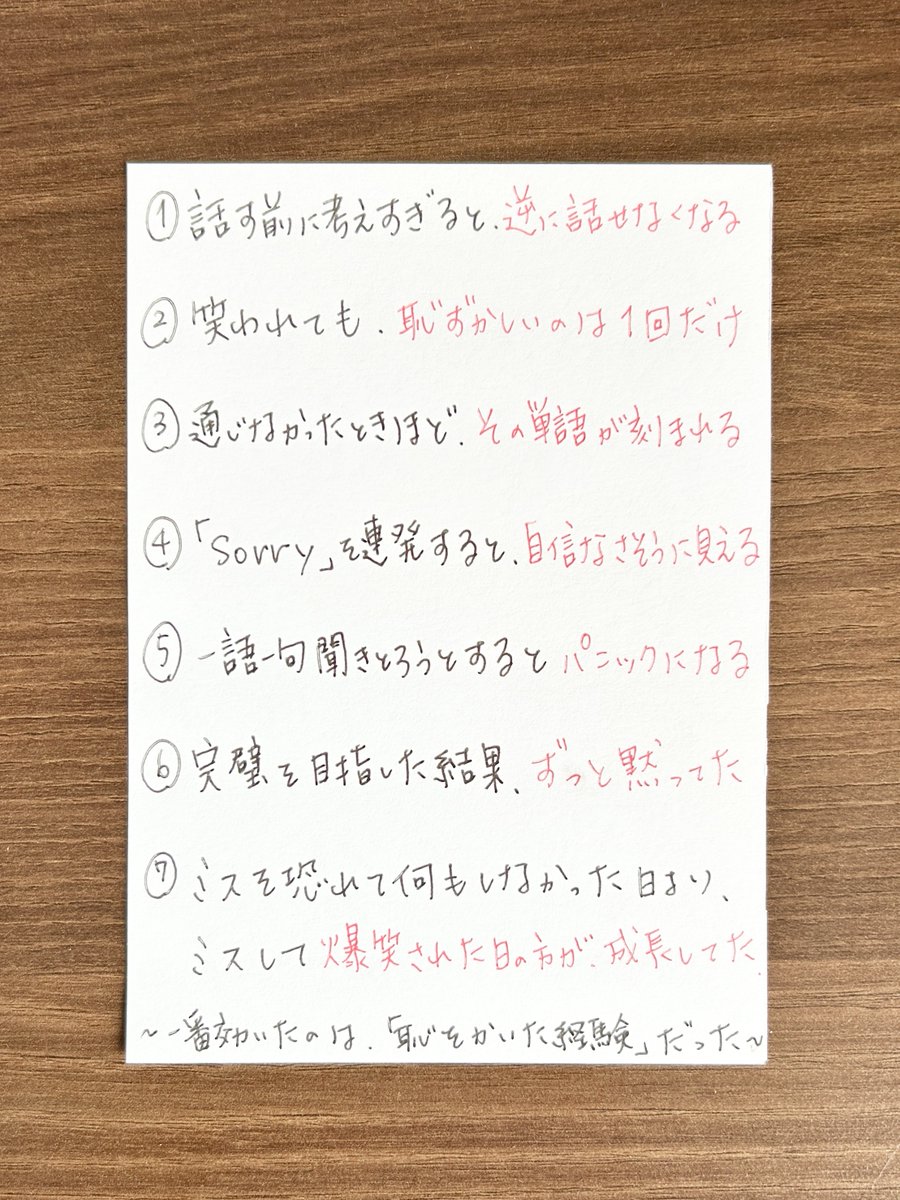 ① 話す前に考えすぎると、逆に話せなくなる
② 笑われても、恥ずかしいのは1回だけ
③ 通じなかったときほど、その単語が刻まれる
④ 「Sorry」を連発すると、自信なさそうに見える
⑤ 一語一句聞きとろうとするとパニックになる
⑥ 完璧を目指した結果、ずっと黙ってた
⑦ ミスを恐れて何もしけなかった日より、
ミスして爆笑された日の方が、成長してた。
~一番効いたのは、「恥をかいた経験」だった~